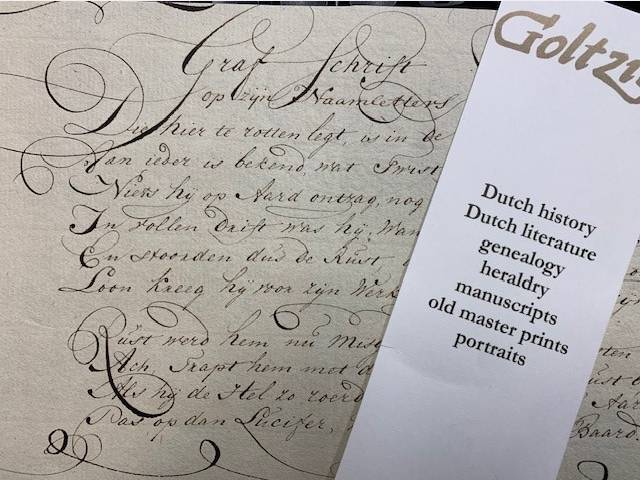 Graf Schrift
op zijn Naamletters
Die hier te rotten legt, is in de
Aan ieder is bekend, wat Twist
Niets hij op Aard ontzag, nog
In vollen Drift was hij, Wan
En stoorden dus de Rust,
Loon kreeg hij voor zijn Werk
Rust werd hem nu Misg
Ach, Trapt hem met d
Als hij de Hel zo roerd
Pas op dan Lucifer,
Aar
Baard.
Goltziu
Dutch history
Dutch literature
genealogy
heraldry
manuscripts
old master prints
portraits